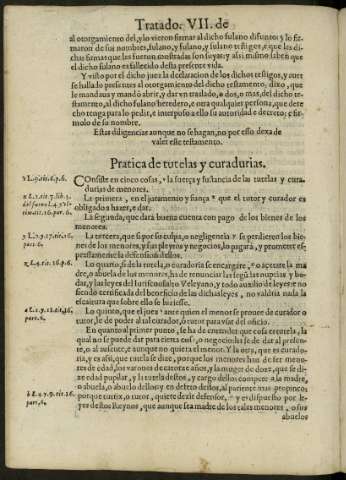 Tratado. VII. de
al otorgamiento del, y lo vieron firmar al dicho fulano difunto: y lo fir
maron de sus nombres, fulano, y fulano, y fulano testigos, è que las di-
chas firmas que les fueron mostradas son suyas: y assi mismo saben que
el dicho fulano es fallecido desta presente vida.
Y visto por el dicho juez la declaracion de los dichos testigos, y que
se halla lo presentes al otorgamiento del dicho testamento, dixo, que
le mandava y mandò abrir, y dar vn traslado, o dos, o mas, del dicho tes
tamento, al dicho fulano heredero, e otra qualquier persona, que dere
cho tenga para lo pedir, e interpuso a ello su autoridad e decreto; e fir
molo de su nombre.
Estas diligencias aunque no se hagan, no por esso dexa de
valer este testamento.
Pratica de tutelas y curadurias.
Consiste en cinco cosas, la fuerça y sustancia de las tutelas y cura
durias de menores.
La primera, en el juramento y fiança que el tutor y curador es
obligado a hazer, e dar.
La segunda, que darà buena cuenta con pago de los bienes de los
menores.
La tercera, que si por su culpa, o negligencia se perdieron los bie-
nes de los menores, y sus pleytos y negocios, lo pagarà, y prometer es-
pressamente la defension dellos.
Lo quarto, si de la tutela, o curaduria se encargare, o açetare la ma
dre, o abuela de los menores, ha de renunciar las segundas nupcias y bo-
das, y las leyes del Iurisconsulto Veleyano, y todo auxilio de leyes: e no
siendo certificada del beneficio de las dichas leyes, no valdria nada la
escritura que sobre ello se hiziesse.
Lo quinto, que el juez ante quien el menor se provee de curador o
tutor, le dè poder al tal curador, o tutor para vsar del oficio.
En quanto al primer punto, se ha de entender que cosa es tutela, la
qual no se puede dar para cierta cosa, o negocio: ha se de dar al presen-
te, o al ausente, e aunque no quiera el menor. Y la otra, que es curadu-
ria, y es assi, que tutela se dize, porque los menores han de ser meno-
res de edad, los varones de catorze años, y la muger de doze, que se di-
ze edad pupilar, y la tutela destos, y cargo dellos compete a la madre,
o abuela, o abuelo dellos: y en defeto destos, al pariente mas propinco:
porque tutrix, o tutor, quiere dezir defensor, y es dispuesto por le-
yes destos Reynos, que aunque sea madre de los tales menores, o sus
abuelos